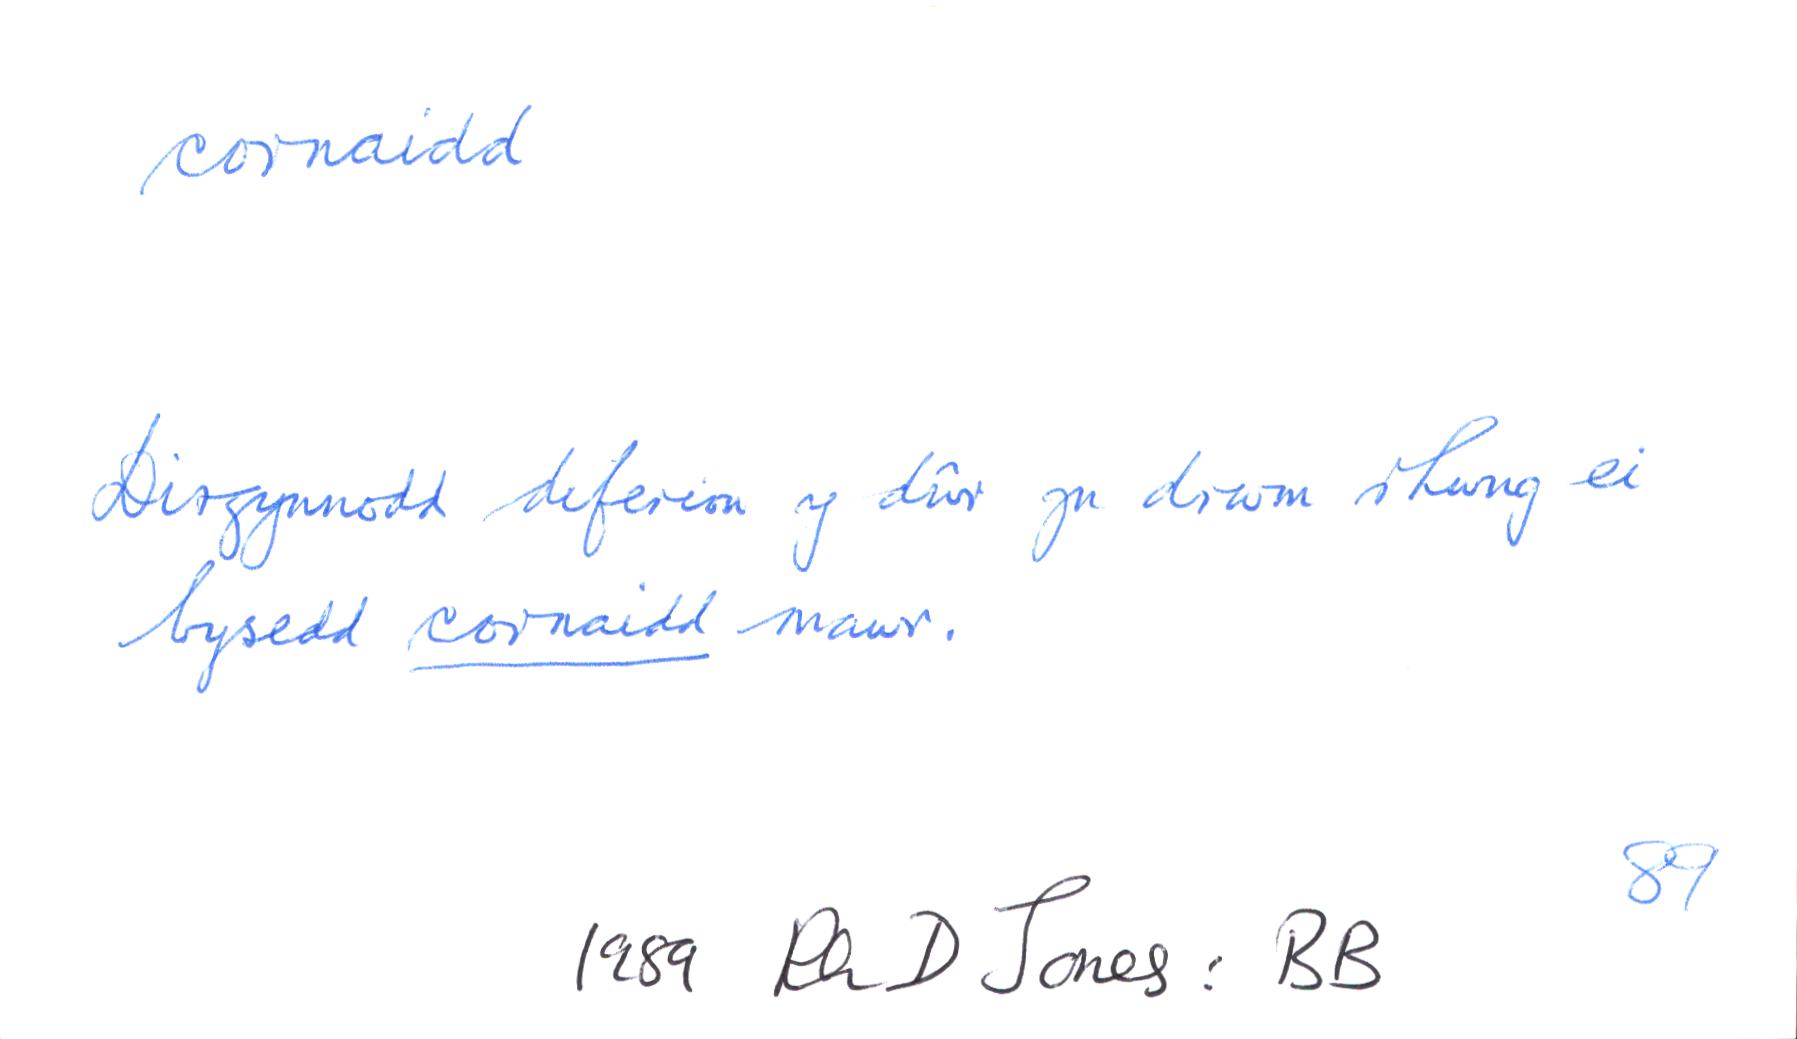 cornaidd
Disgynnodd deferion y dŵr yn drwm rhwng ei
bysedd cornaidd mawr.
89
1989 Rh D Jones : BB